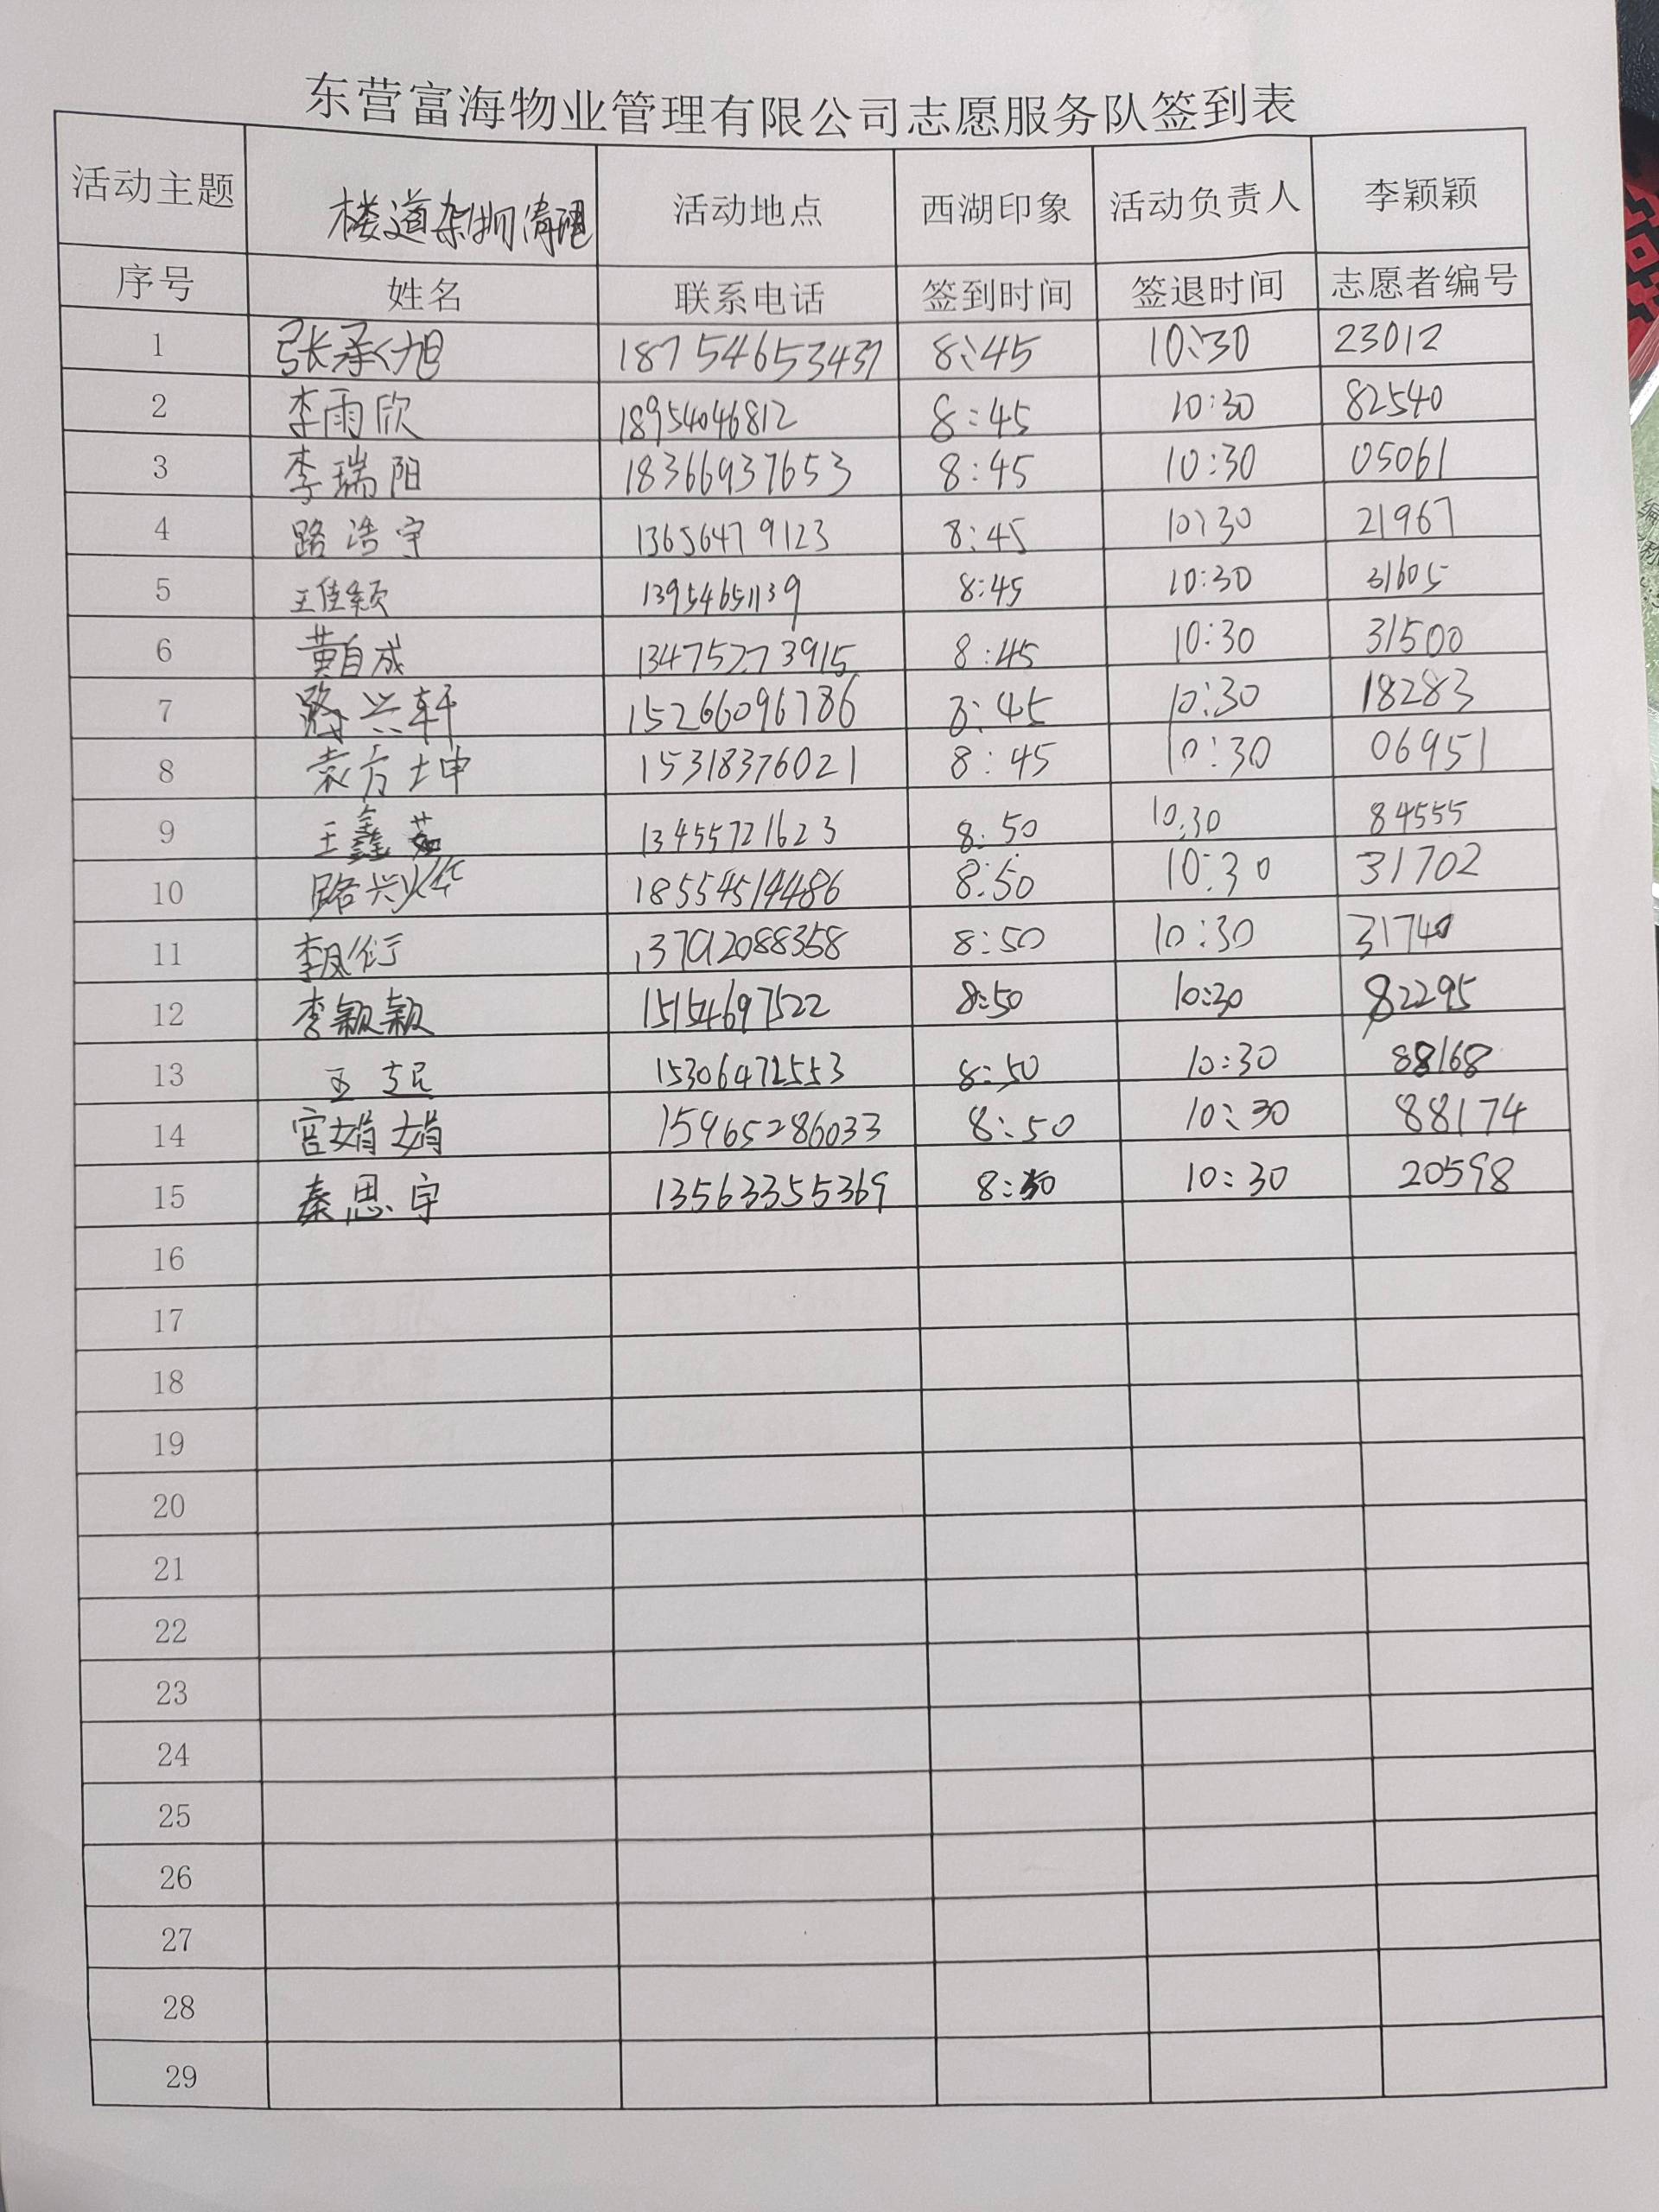 东营富海物业管理有限公司志愿服务队签到表
活动主题 楼道杂物清理 活动地点 西湖印象 活动负责人 李颖颖
序号 姓名 联系电话 签到时间 签退时间 志愿者编号
1 张承旭 18754653437 8:45 10:30 23012
2 李雨欣 18954046812 8:45 10:30 82540
3 李瑞阳 18366937653 8:45 10:30 05061
4 路浩宇 13656479123 8:45 10:30 21967
5 王佳颖 13954651139 8:45 10:30 31605
6 黄自成 13475273915 8:45 10:30 31500
7 路兴轩 15266096786 8:45 10:30 18283
8 袁方坤 15318376021 8:45 10:30 06951
9 王鑫茹 13455721623 8:50 10:30 84555
10 路兴烨 18554514486 8:50 10:30 31702
11 李凤行 13792088358 8:50 10:30 31740
12 李颖颖 15154697522 8:50 10:30 82295
13 王 15306472553 8:50 10:30 88168
14 宫娟娟 15965286033 8:50 10:30 88174
15 秦思宇 13563355369 8:50 10:30 20598
16
17
18
19
20
21
22
23
24
25
26
27
28
29